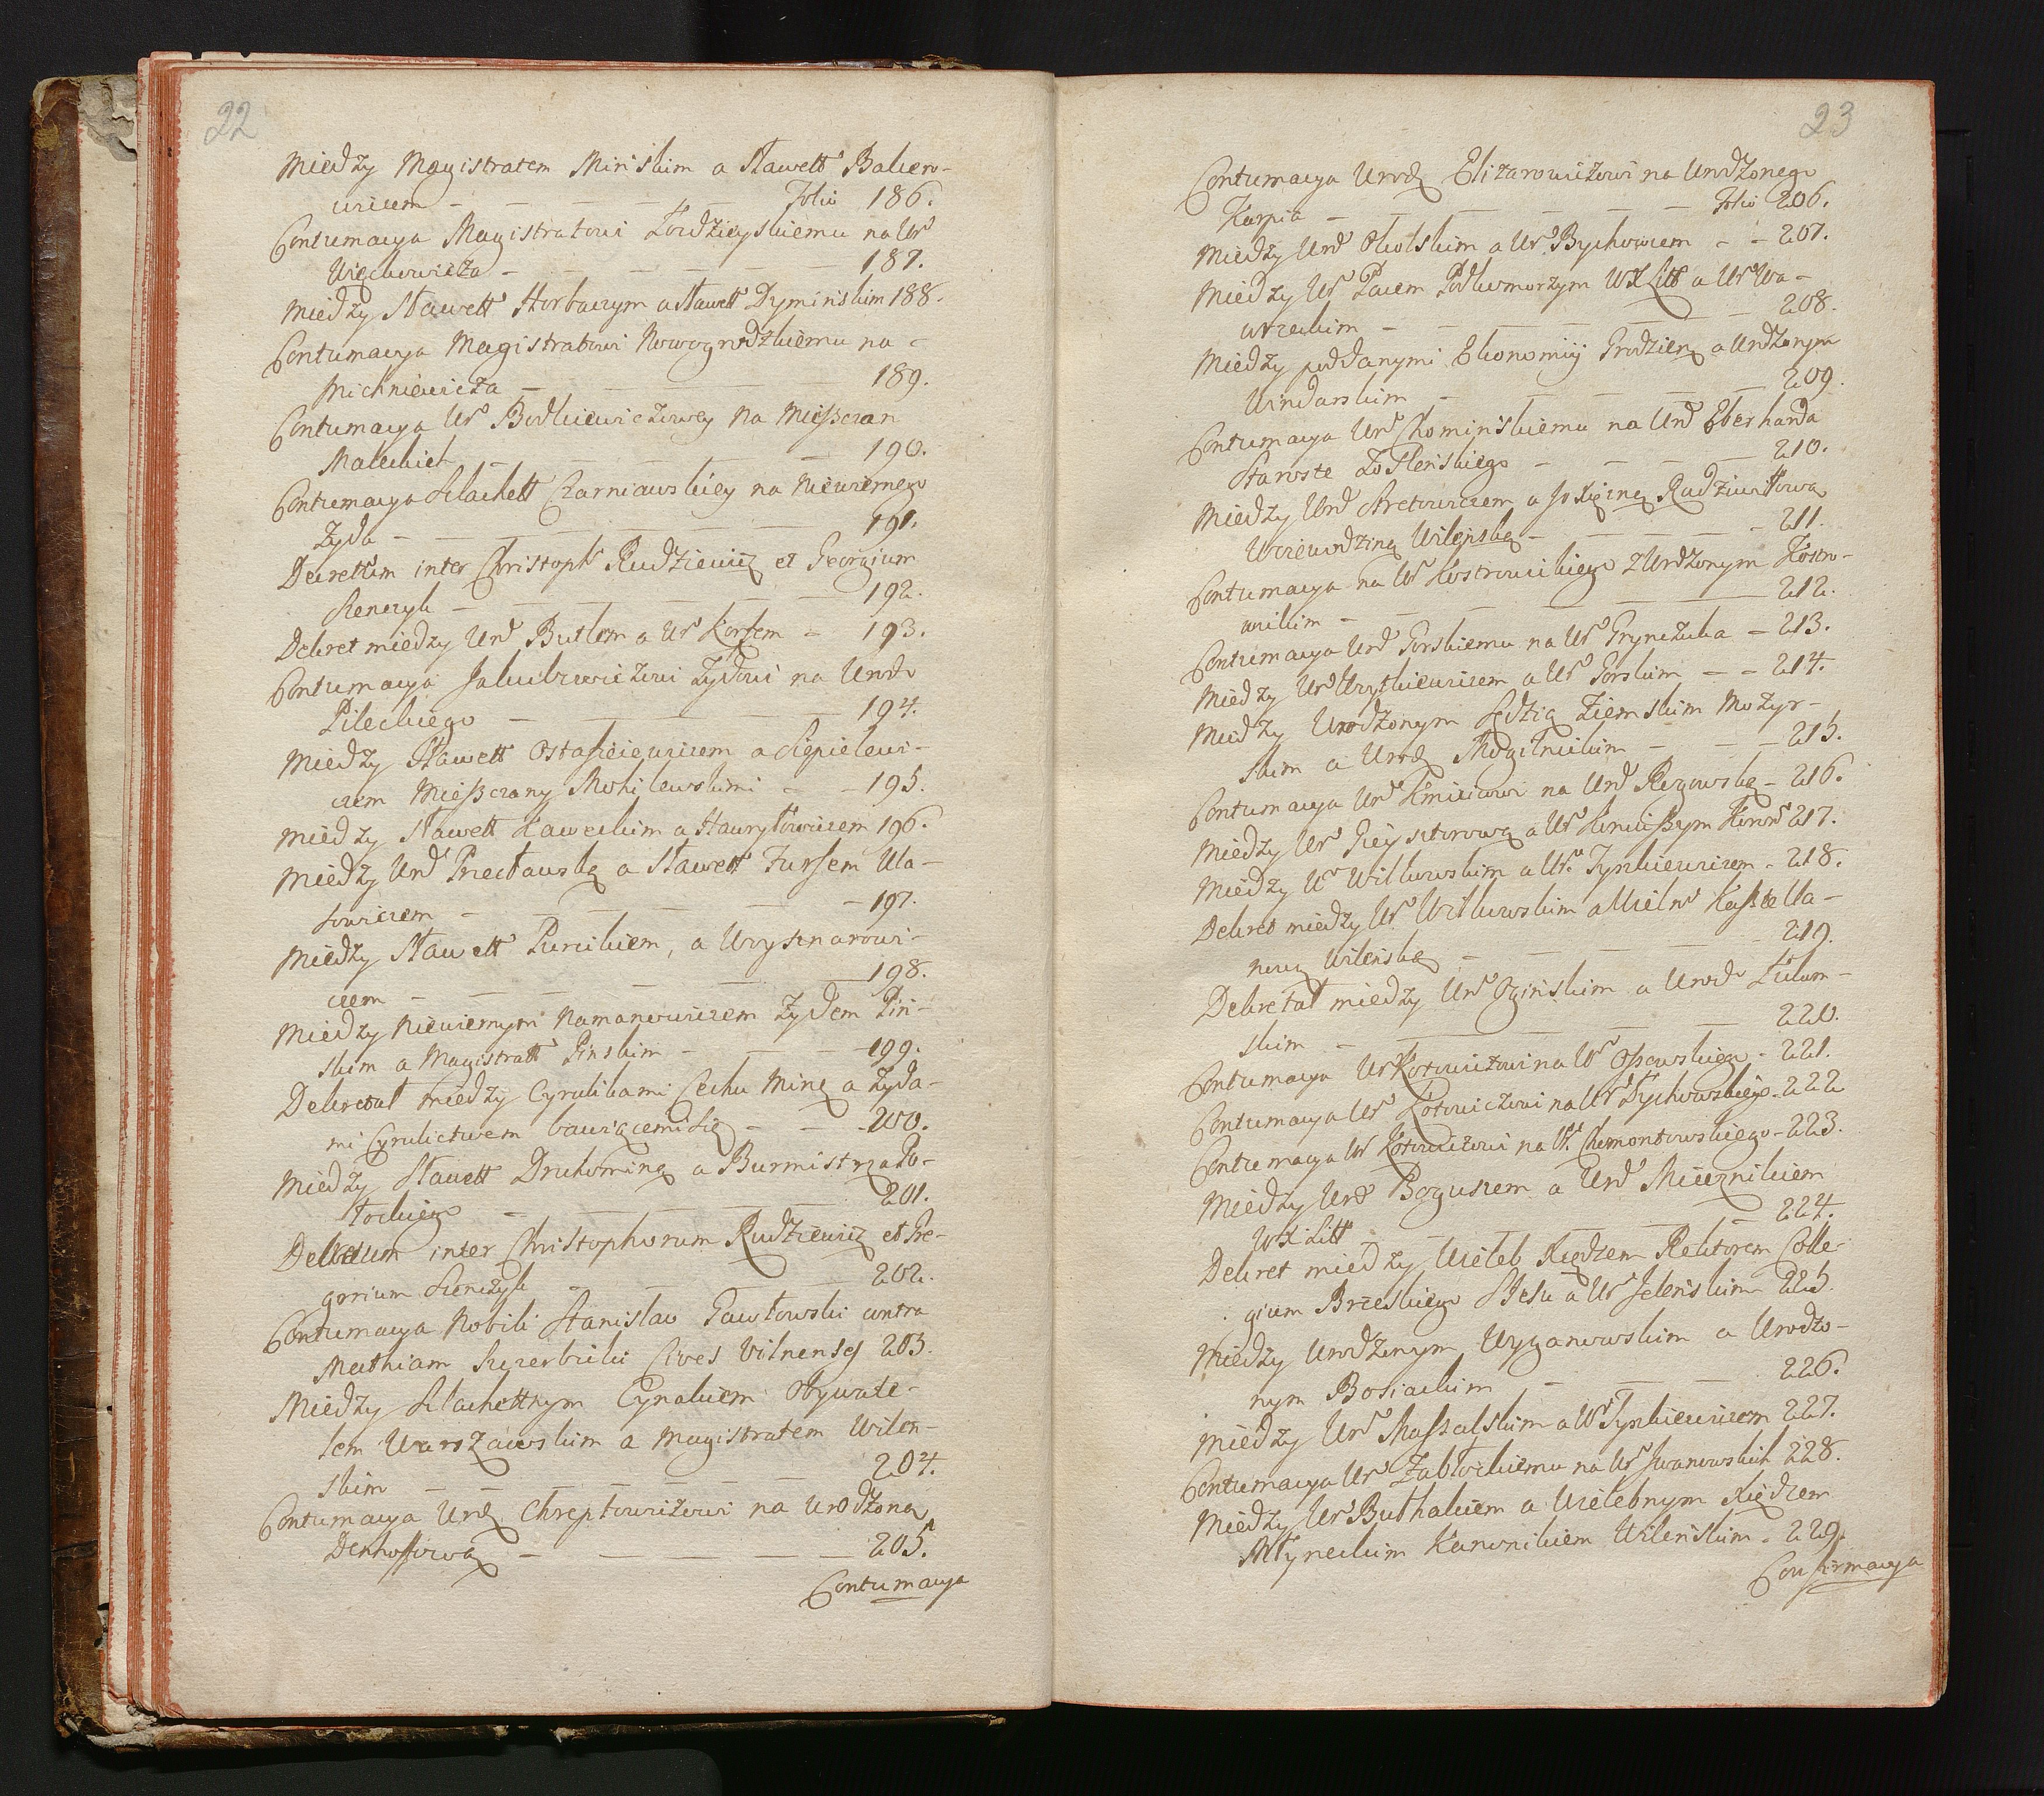 22
Między Magistratem Mińskim a Sławett Bakiero-
wiczem – – – – – Folio 186.
Contumacya Magistratowi Łozdzieyskiemu na Ur
Więckowicza – – – – – 187.
Między Sławett Horbaczym a Sławett Dymińskim 188.
Contumacya Magistratowi Nowogrodzkiemu na –
Michniewicza – – – – 189.
Contumacya Ur Bodkiewiczowey na Mieszczan
Maleckich – – – – 190.
Contumacya Szlachett Czarniawskiey na Niewiernego
Żyda – – – – – 191.
Decretum inter Christoph Rudziewicz et Georgium
Sienczyk – – – – – 192.
Dekret między Urd Butlem a Ur Korsem – 193.
Contumacya Jakubowiczowi Żydowi na Urod
Pileckiego – – – – – 194.
Między Sławett Ostasiewiczem a Siepielewi-
czem Mieszczany Mohilewskimi – – 195.
Między Sławett Ławeckim a Hawryłowiczem 196.
Między Urd Przecławską a Sławett Fursem Ula-
sowiczem – – – – – 197.
Między Sławett Purcikiem, a Urysznarowi-
czem – – – – – 198.
Między Niewiernym Namanowiczem Żydem Piń-
skim a Magistratt Pinskim – – – 199.
Dekretat między Cyrulikami Cechu Miną a Żyda-
mi Cyrulictwem bawiącemi się – – – 200.
Między Sławett Druhominą a Burmistrza Po-
łockiego – – – – – 201.
Decretum inter Christophorum Rudziewicz et Gre-
gorium Sienczyk – – – – 202.
Contumacya Nobili Stanislao Gawłowski contra
Mathiam Szczerbicki Cives Vilnenses 203.
Między Szlachettnym Cynakiem Obywate-
lem Warszawskim a Magistratem Wilen-
skim – – – – – 204.
Contumacya Urd Chreptowiczowi na Urodzoną
Denhoffową – – – – – 205.
Contumacya
23
Contumacya Urod Elizarowiczowi na Urodzonego
Karpia – – – – – Folio 206.
Między Urd Okolskim a Ur Bychowcem – – 207.
Między Ur Pacem Podkomorzym WXLitt a Ur Wa-
wrzeckim – – – – – 208.
Między poddanymi Ekonomiij Grodzien a Urdzonym
Windarskim – – – – 209.
Contumacya Urd Chominskiemu na Urd Eberharda
Staroste – – – – 210.
Między Urd Aretowiczem a Jo Xiężną Radziwiłłową
Wojewodziną Wileńską – – – – 211.
Contumacya na Ur Kostrowickiego z Urdzonym Kostro-
wickim – – – – – 212.
Contumacya Urd Gorskiemu na Ur Hrynczuka – 213.
Między Ur Wyszkiewiczem a Ur Gorskim – – 214.
Między Urodzonym Sędzią Ziemskim Mozyr-
skim a Urod Mogilnickim – – – 215.
Contumacya Urd Kmicicowi na Urd Rezowską – 216.
Między Ur Gieysztorową a Ur 217.
Między Ur Witkowskim a Ur Tyszkiewiczem – 218.
Dekret między Ur Witkowskim a Wielm Kasztella-
nową Wileńską – – – – 219.
Dekretat między Urd Ogińskim a Urod Żułom-
skim – – – – – 220.
Contumacya Ur Kotowiczowi na Ur Ossowskiego – 221.
Contumacya Ur Kotowiczowi na Ur Tychowskiego – 222
Contumacya Ur Kotowiczowi na Ur Chemontowskiego – 223.
Między Urd Boguszem a Urd Miecznikiem
WX Litt – – – – – 224.
Dekret między Wieleb Xiędzem Rektorem Colle-
gium Brzeskiego SJesu a Ur Jeleńskim 225.
Między Urodzonym Wyganowskim a Urodzo-
nym Bosiackim – – – 226.
Między Ur Massalskim a Ur Tyszkiewiczem 227.
Contumacya Ur Zabłockiemu na Ur Iwanowskich 228.
Między Ur Buthakiem a Wielebnym Xiędzem
Młyneckim Kanonikiem Wileńskim – 229.
Confirmacya